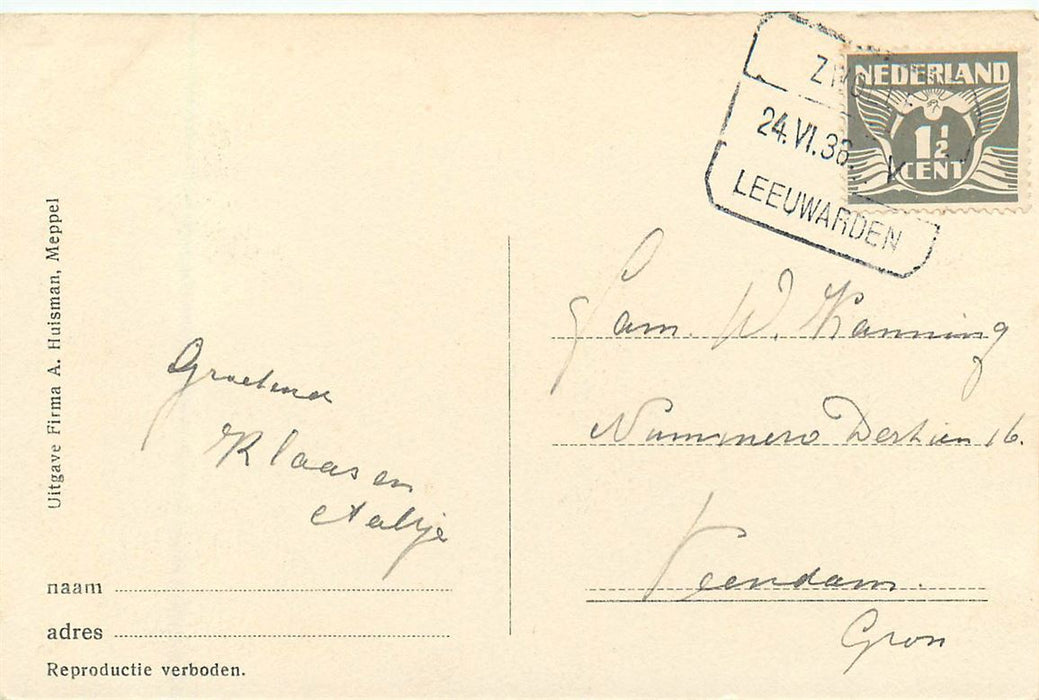 ZWO
24.VI.38 V
LEEUWARDEN
NEDERLAND
1½
CENT
Uitgave Firma A. Huisman, Meppel
Groetend
Klaas en
Aaltje
naam
adres
Reproductie verboden.
Fam. W. Kanning
Nummero Dertien 16.
Veendam.
Gron